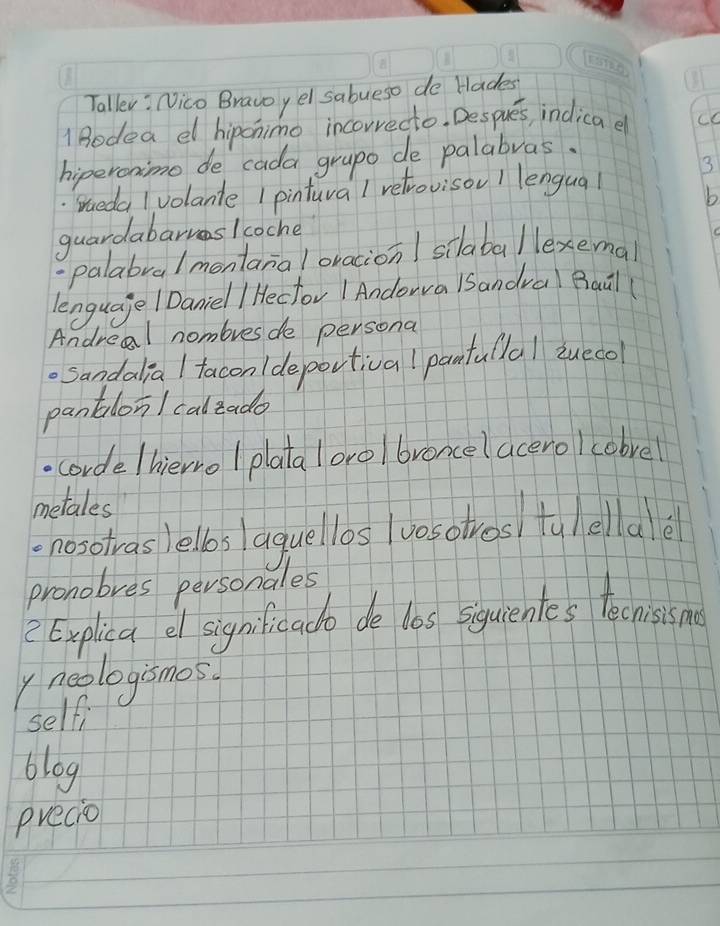 Taller: Nico Bravo y el sabueso de Hades
1 Rodea el hipónimo incorrecto. Después, indica el
hiperonimo de cada grupo de palabras.
. rueda / volante / pintura / retrovisor / lengua /
guardabarros / coche
• palabra / montaña / oración / sílaba / lexema /
lenguaje / Daniel / Hector / Andorra / Sandra / Raúl /
Andrea / nombres de persona
• Sandalia / tacon / deportiva / pantufla / zueco /
pantalon / calzado
• corde / hierro / plata / oro / bronce / acero / cobre /
metales
• nosotras / ellos / aquellos / vosotros / tu / ella / él
pronobres personales
2 Explica el significado de los siguientes tecnisismos
y neologismos.
selfi
blog
precio
Notas
3
b